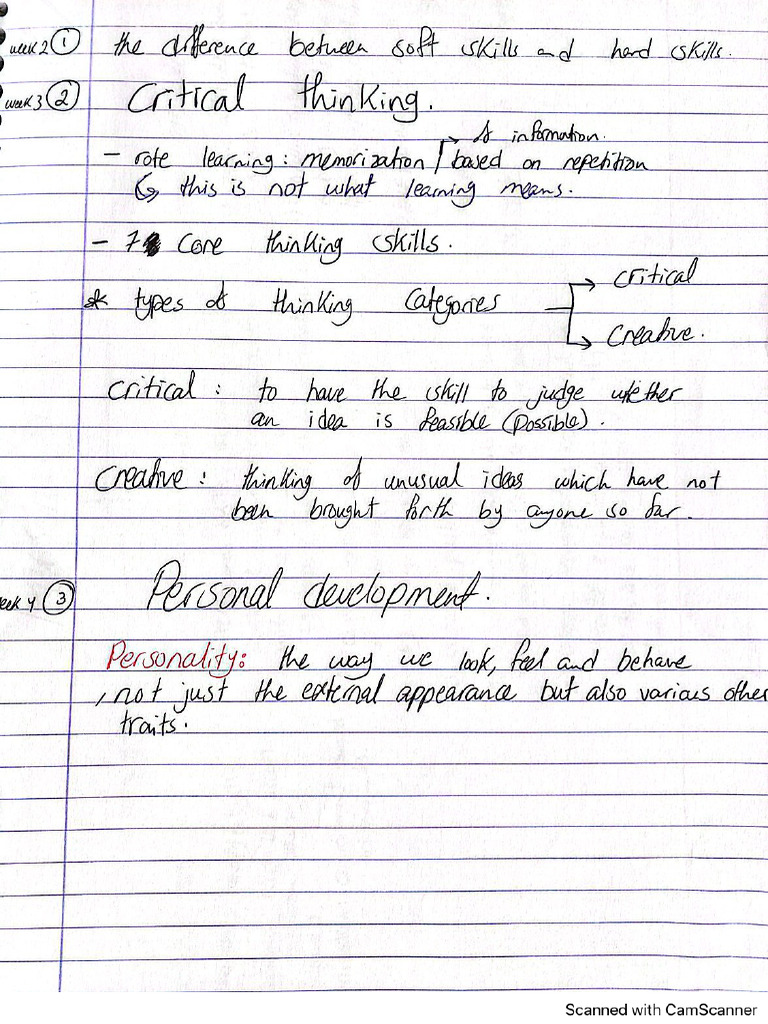 week 2 ① the difference between soft skills and hard skills.
week 3 ② Critical thinking.
of information.
- rote learning : memorization / based on repetition
↳ this is not what learning means.
- 7 Core thinking skills.
critical
* types of thinking Categories
Creative.
Critical : to have the skill to judge whether
an idea is feasible (possible) .
Creative : thinking of unusual ideas which have not
been brought forth by anyone so far .
eek 4 ③ Personal development.
Personality: the way we look, feel and behave
, not just the external appearance but also various other
traits.
Scanned with CamScanner